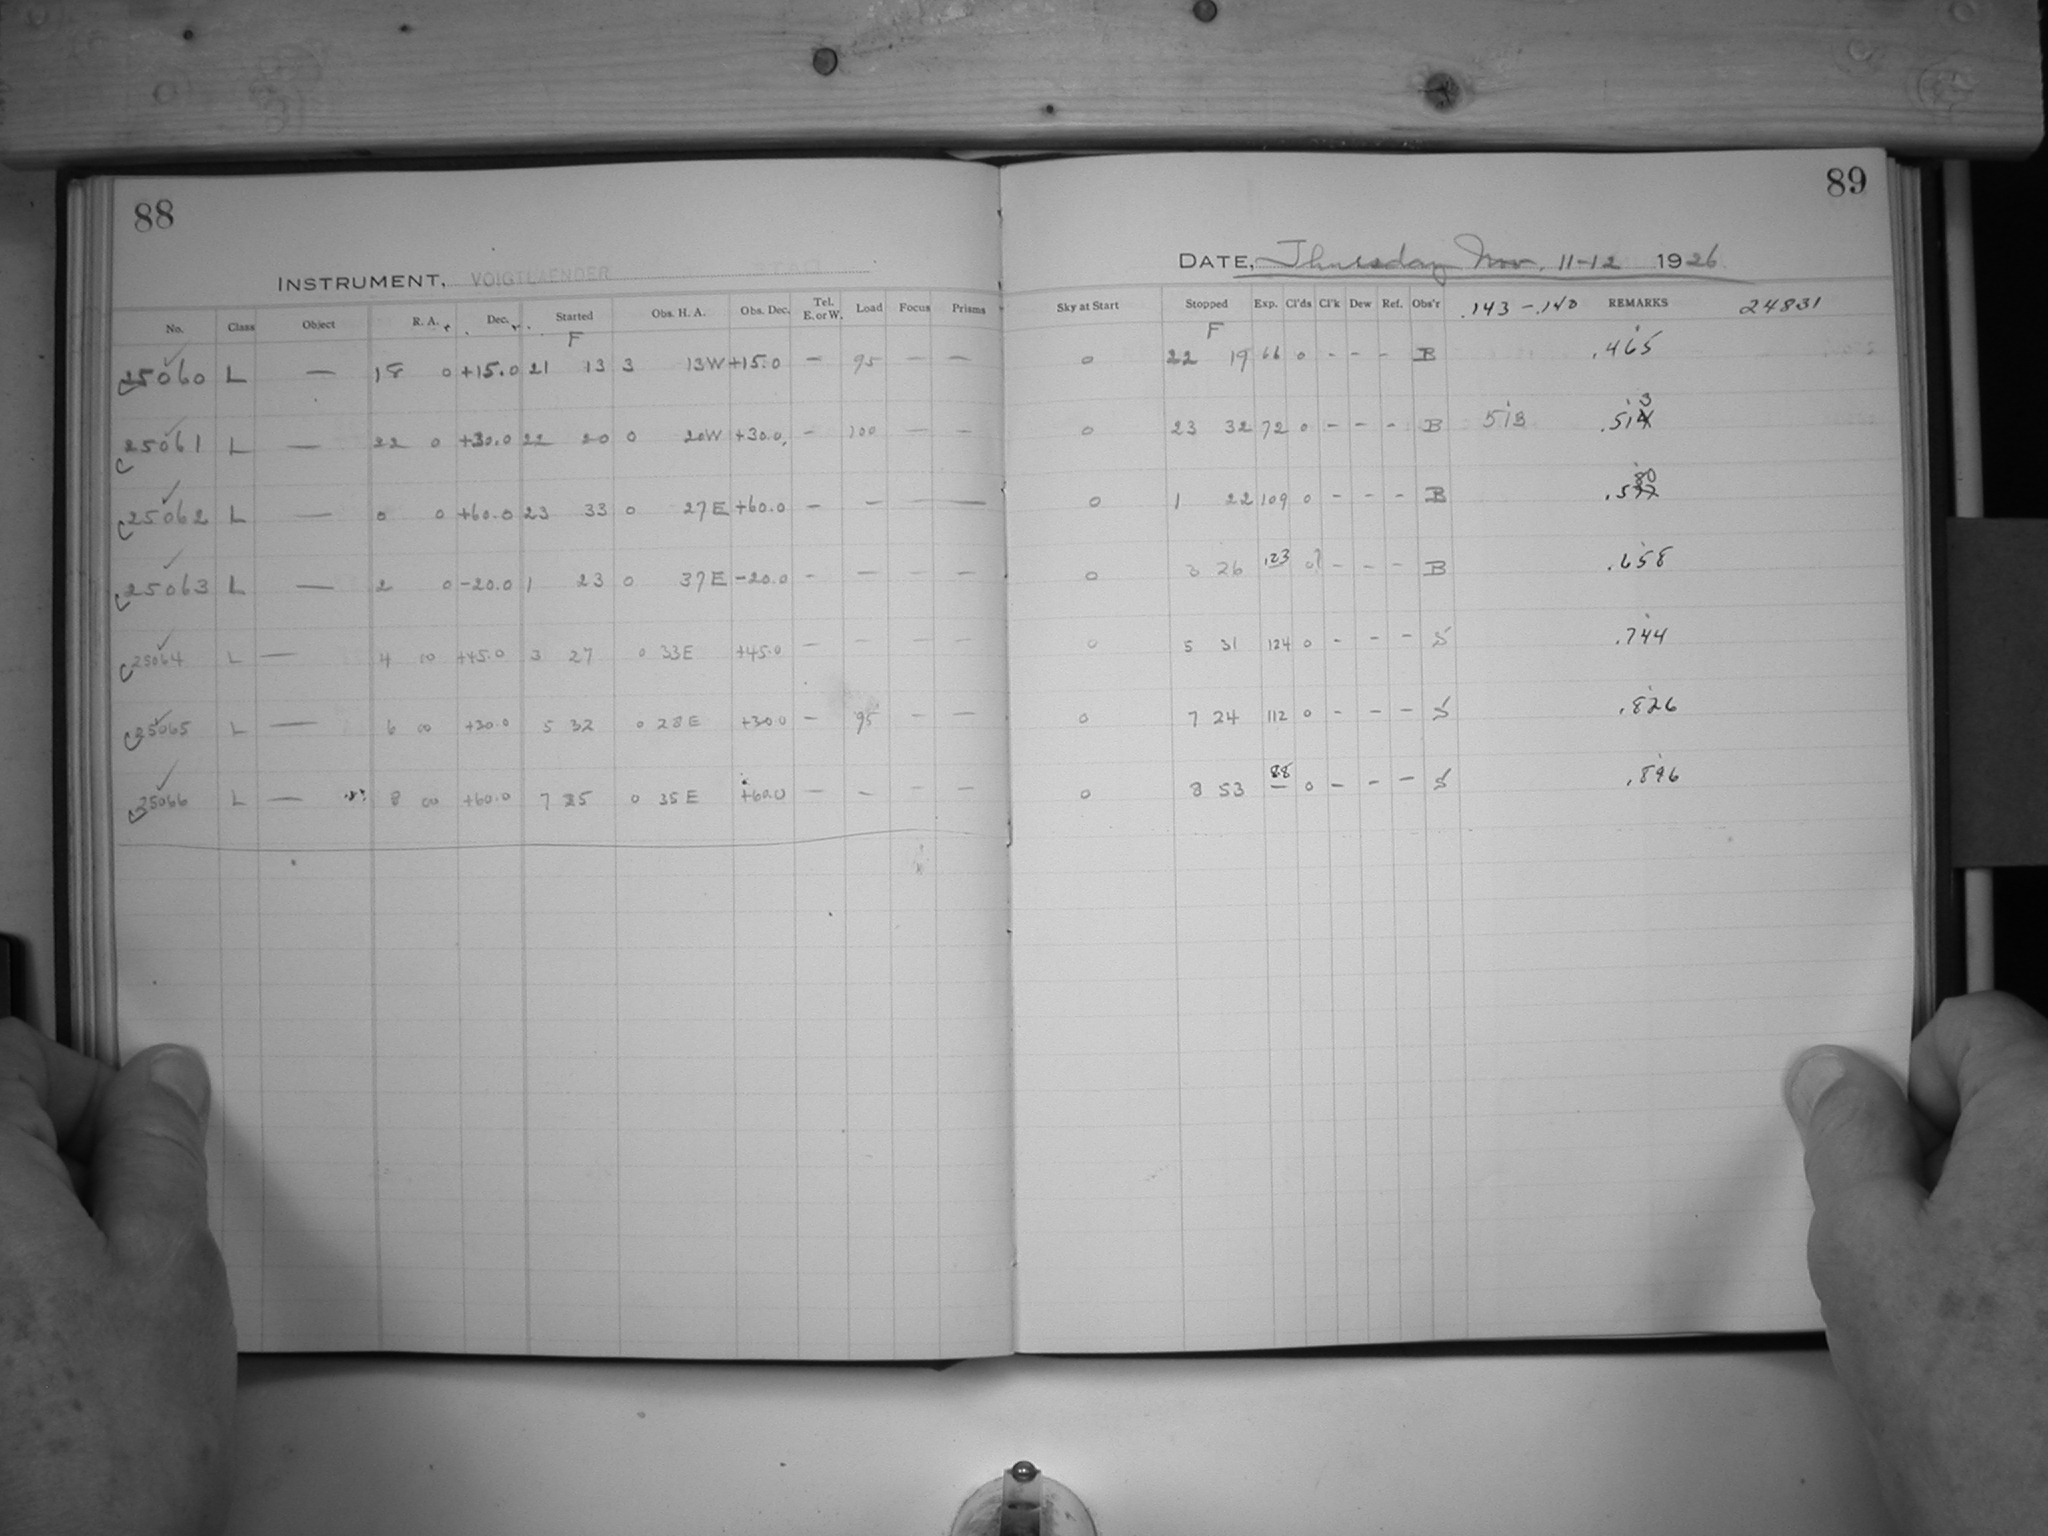 88
INSTRUMENT, VOIGTLAENDER
No. Class Object R. A. Dec. Started Obs. H. A. Obs. Dec. Tel. E. or W. Load Focus Prisms
F
25060 L — 18 0 +15.0 21 13 3 13W +15.0 — 95 — —
25061 L — 22 0 +30.0 22 20 0 20W +30.0 — 100 — —
25062 L — 0 0 +60.0 23 33 0 27E +60.0 — — — —
25063 L — 2 0 -20.0 1 23 0 37E -20.0 — — — —
25064 L — 4 00 +45.0 3 27 0 33E +45.0 — — — —
25065 L — 6 00 +30.0 5 32 0 28E +30.0 — 95 — —
25066 L — 8 00 +60.0 7 25 0 35E +60.0 — — — —
89
DATE, Thursday Nov. 11-12 1926
Sky at Start Stopped Exp. Cl'ds Cl'k Dew Ref. Obs'r .143 - .140 REMARKS 24831
F
0 22 19 66 0 - - - B .465
0 23 32 72 0 - - - B 513 .513
0 1 22 109 0 - - - B .580
0 3 26 123 0 - - - B .658
0 5 31 124 0 - - - S .744
0 7 24 112 0 - - - S .826
0 8 53 88 0 - - - S .896